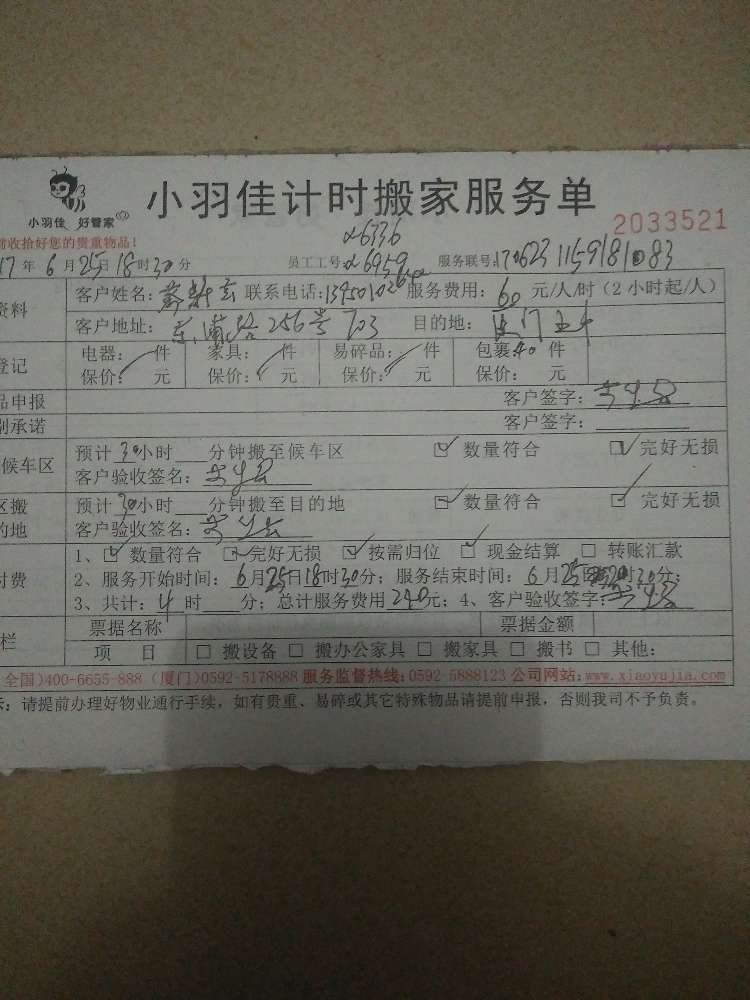 小羽佳 好管家
小羽佳计时搬家服务单
2033521
前收拾好您的贵重物品！
α6336
17年6月25日18时30分 员工工号：α6959 服务联号：1706231159181083
资料
客户姓名： 联系电话： 服务费用：60元/人/时（2小时起/人）
客户地址： 256号703 目的地：
登记
电器： 件 家具： 件 易碎品： 件 包裹：40件
保价： 元 保价： 元 保价： 元 保价： 元
品申报 客户签字：
别承诺 客户签字：
候车区
预计30小时 分钟搬至候车区 数量符合 完好无损
客户验收签名：
区搬
预计30小时 分钟搬至目的地 数量符合 完好无损
的地 客户验收签名：
1、数量符合 完好无损 按需归位 现金结算 转账汇款
付费 2、服务开始时间：6月25日18时30分；服务结束时间：6月25日 30分；
3、共计：4时 分；总计服务费用240元；4、客户验收签字：
栏
票据名称 票据金额
项 目 搬设备 搬办公家具 搬家具 搬书 其他：
全国)400-6655-888 (厦门)0592-5178888 服务监督热线：0592-5888123 公司网站：www.xiaoyujia.com
示：请提前办理好物业通行手续，如有贵重、易碎或其它特殊物品请提前申报，否则我司不予负责。